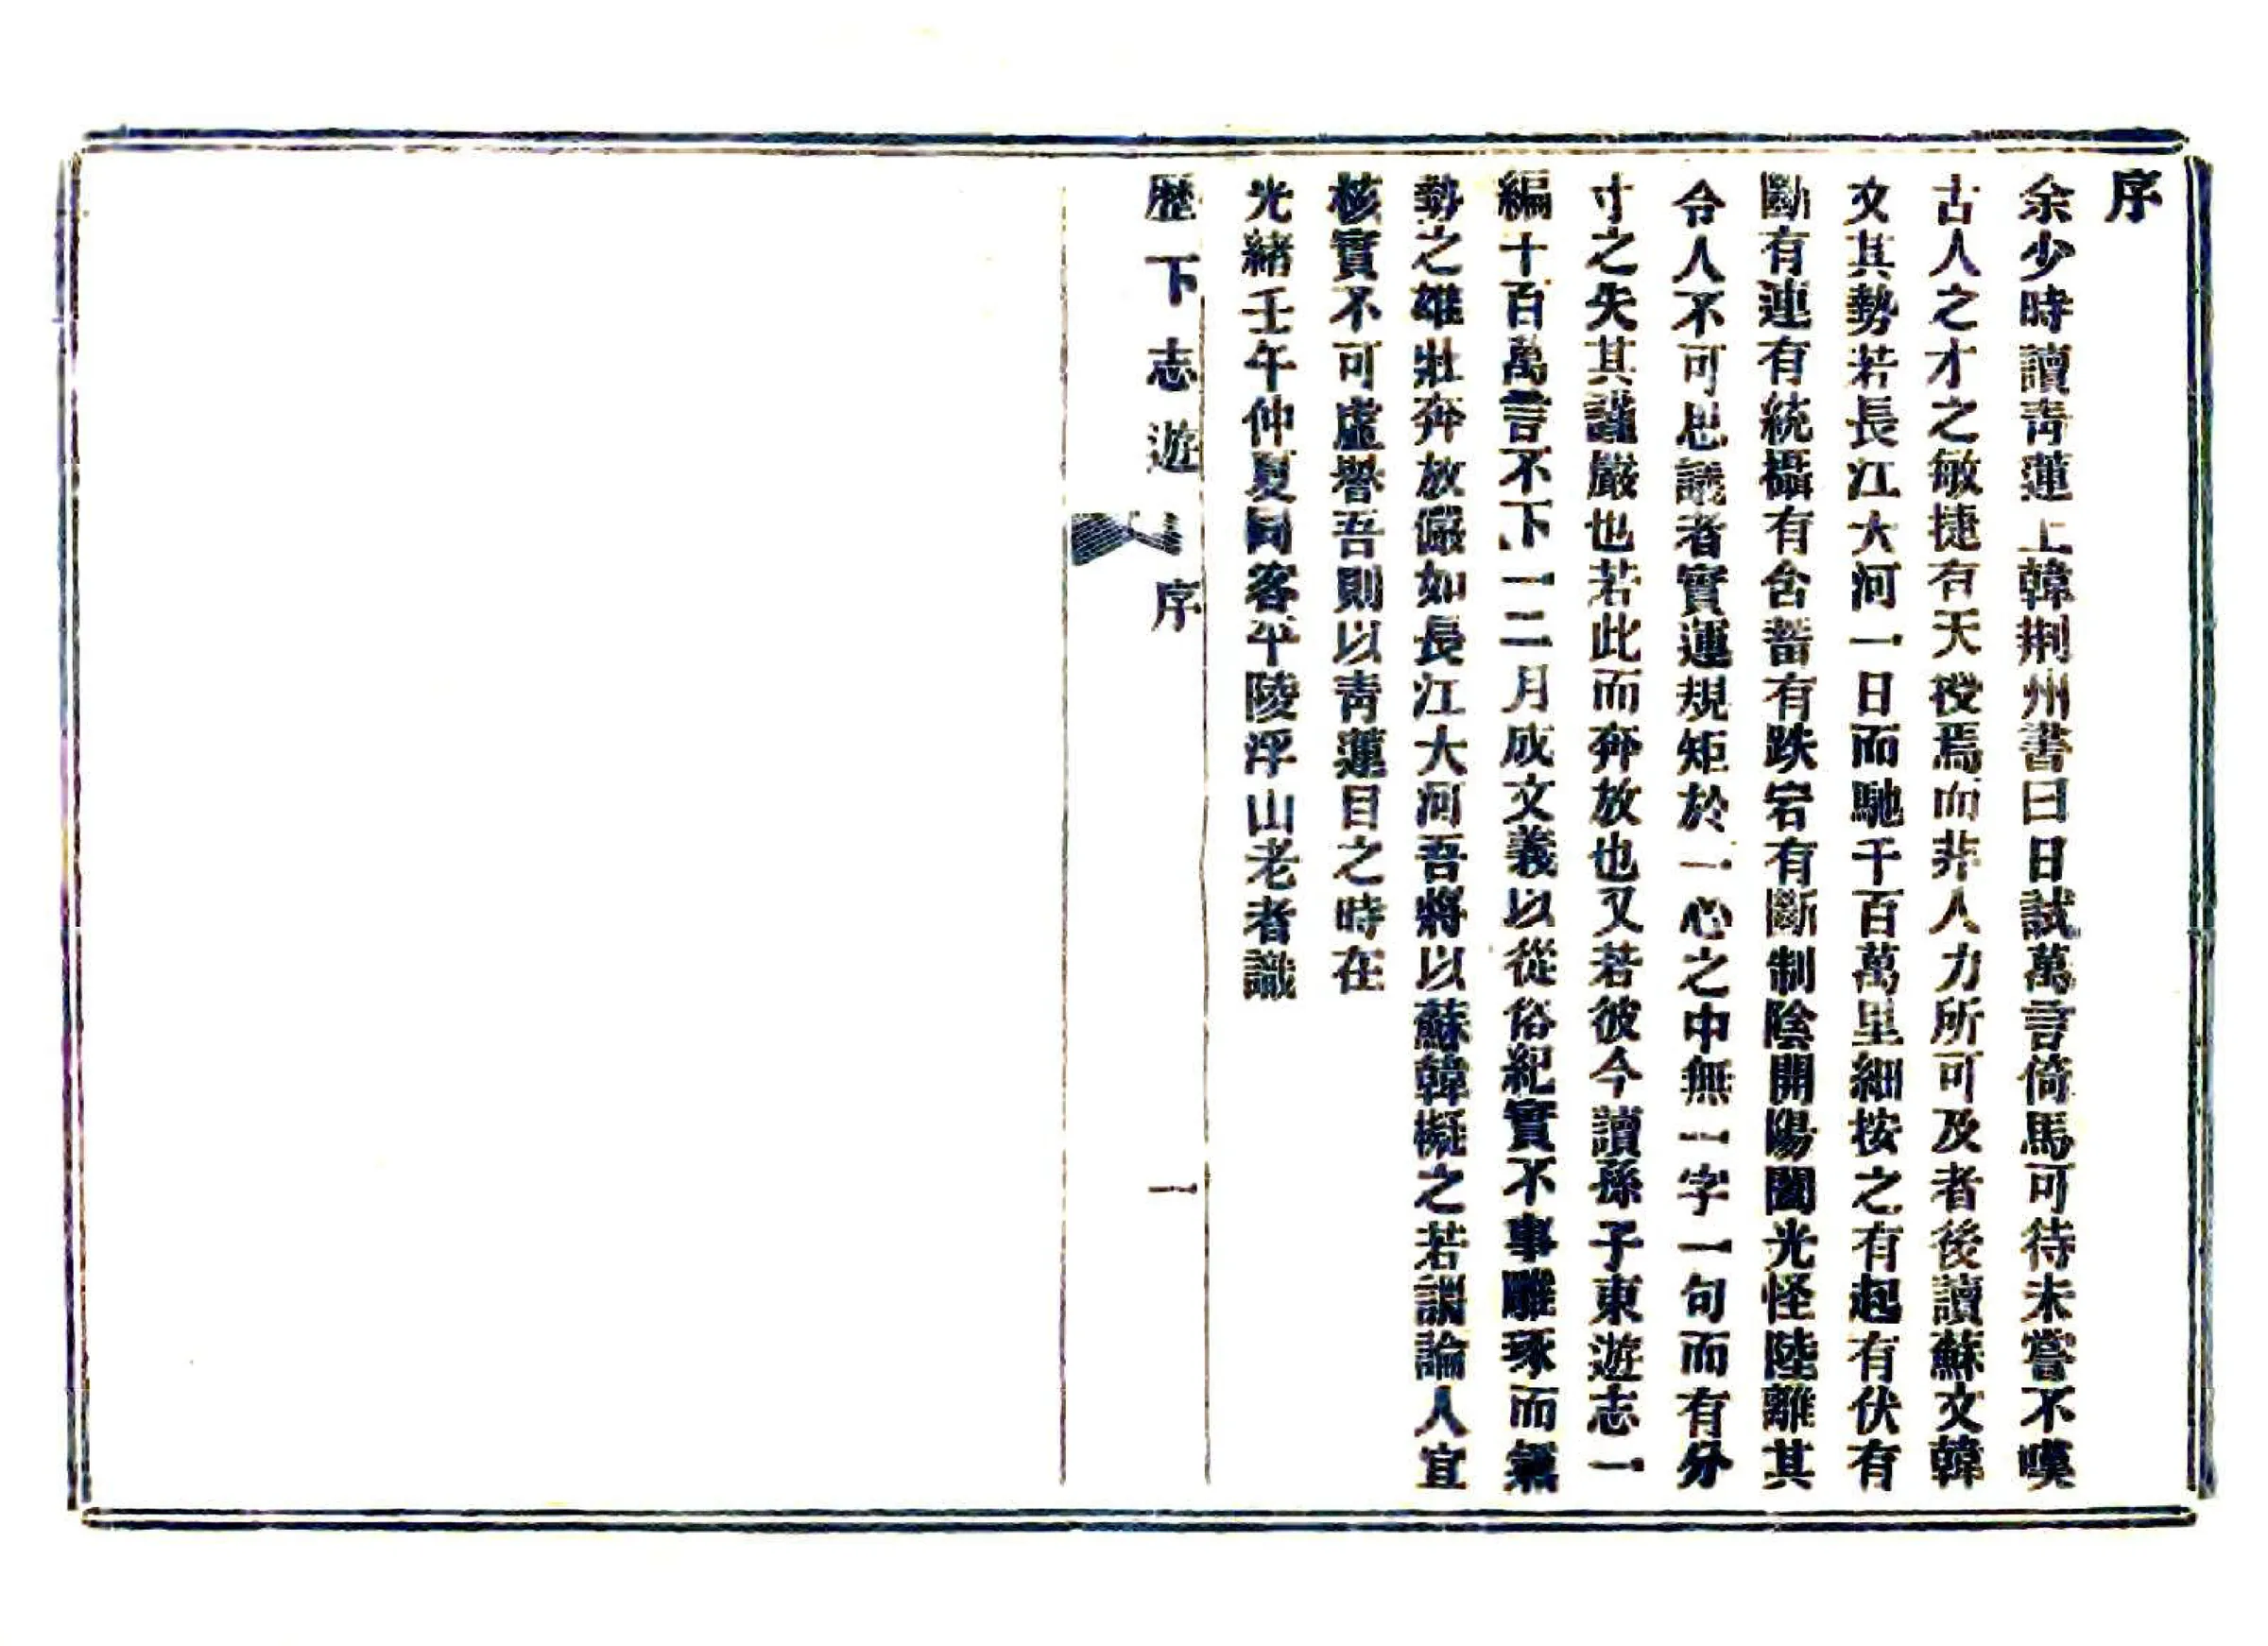 序
余少時讀靑蓮上韓荆州書曰日試萬言倚馬可待未嘗不嘆
古人之才之敏捷有天授焉而非人力所可及者後讀蘇文韓
文其勢若長江大河一日而馳千百萬里細按之有起有伏有
斷有連有統攝有含蓄有跌宕有斷制陰開陽闔光怪陸離其
令人不可思議者實運規矩於一心之中無一字一句而有分
寸之失其謹嚴也若此而奔放也又若彼今讀孫子東遊志一
編十百萬言不下一二月成文義以從俗紀實不事雕琢而氣
勢之雄壯奔放儼如長江大河吾將以蘇韓擬之若謂論人宜
核實不可虛譽吾則以靑蓮目之時在
光緒壬午仲夏同客平陵浮山老者識
歷下志遊
序
一